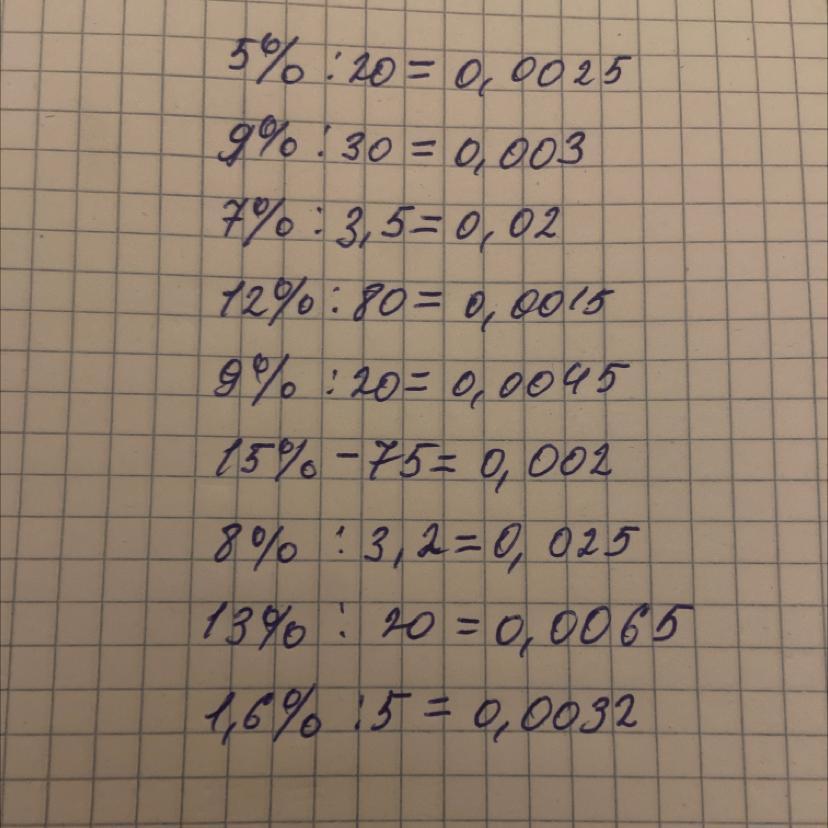 5% : 20 = 0,0025
9% : 30 = 0,003
7% : 3,5 = 0,02
12% : 80 = 0,0015
9% : 20 = 0,0045
15% - 75 = 0,002
8% : 3,2 = 0,025
13% : 20 = 0,0065
1,6% : 5 = 0,0032